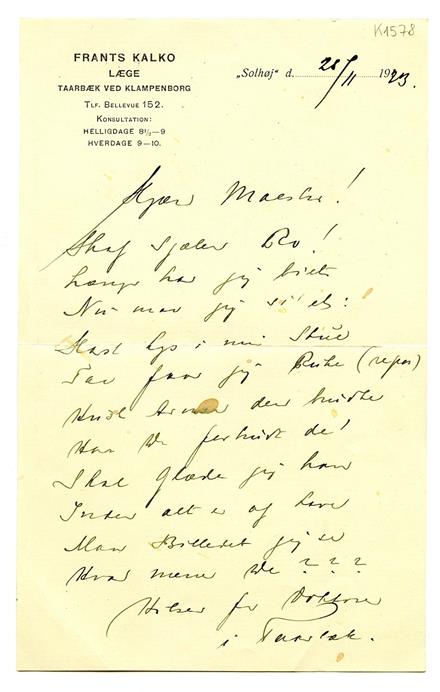 K1578
FRANTS KALKO
LÆGE
TAARBÆK VED KLAMPENBORG
TLF. BELLEVUE 152.
KONSULTATION:
HELLIGDAGE 8½–9
HVERDAGE 9–10.
„Solhøj“ d. 28/11 1923.
Kjære Maestro!
Skaf Sjælen Ro!
Længe har jeg
Nu maa jeg :
Kast Lys i min Stue
Faar jeg (repos)
den
Har De de!
Skal Glæde jeg have
Inden alt er og
Maa Billedet jeg se
Hvad mener De ? ? ?
Hilsen fra Doktoren
i Taarbæk.